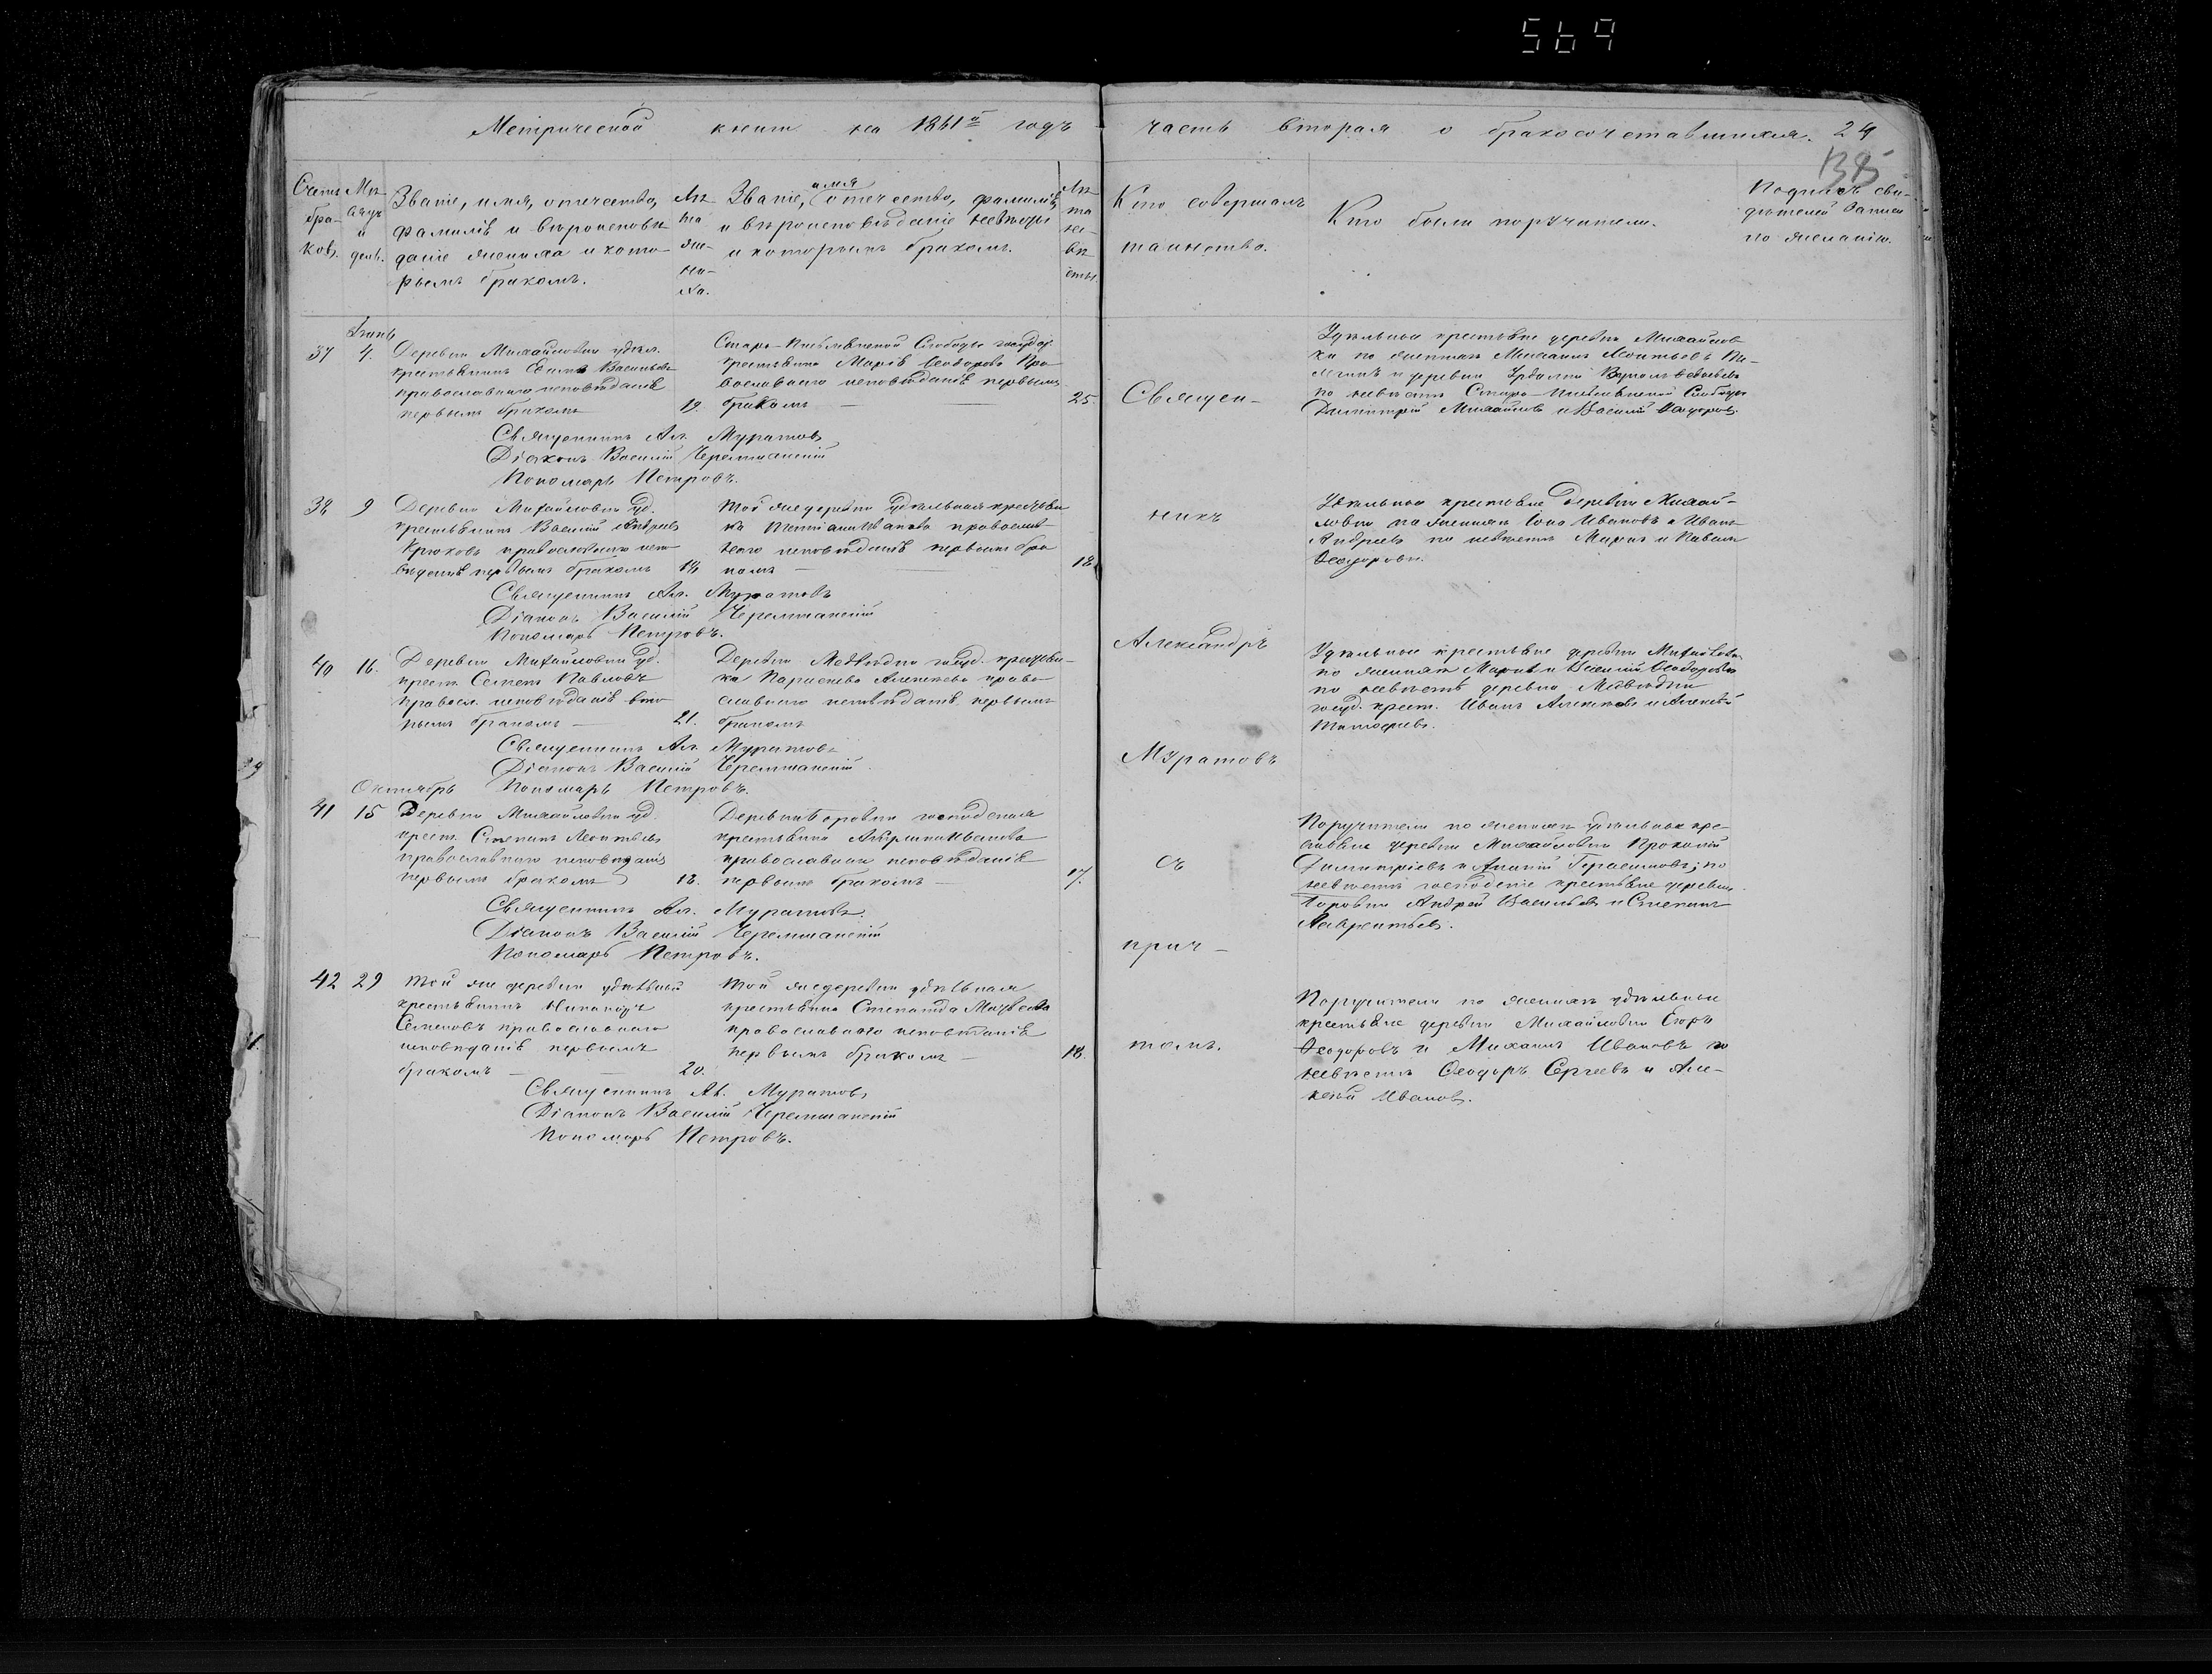 569
Метрической книги на 1861й годъ
часть вторая о бракосочетавшихся. 24
135
Счетъ бра- ковъ.
Мѣ- сяцъ и день.
Званіе, имя, отечество,
фамилія и вѣроисповѣ
даніе жениха и кото-
рымъ бракомъ.
Лѣ та же- ни- ха.
имя
Званіе, отечество, фамилія
и вѣроисповѣданіе невѣсты
и которымъ бракомъ.
Лѣ та не- вѣ сты.
Кто совершалъ
таинство.
Кто были поручители.
Подпись сви-
дѣтелей записи
по желанію.
37
4.
Деревни Михайловки удѣл.
крестьянинъ Васильевъ
православнаго исповѣданія
первымъ бракомъ 19.
Слободы госуд.
крестьянка Марія Ѳеодорова Пра
вославнаго исповѣданія первымъ
бракомъ — 25.
Удѣльные крестьяне деревни Михайлов
ки по женихѣ Михаилъ Леонтьевъ
и деревни
по невѣстѣ Слободы
Димитрій Михайловъ и Василій Ѳедоровъ.
Священникъ Ал. Муратовъ
Діаконъ Василій Черемшанскій
Пономарь Петровъ.
38 9
Деревни Михайловки уд.
крестьянинъ Василій Андреевъ
Крюковъ православнаго испо
вѣданія первымъ бракомъ 18
Той же деревни удѣльная крестьян
ка Иванова православ-
наго исповѣданія первымъ бра
комъ — 18.
Удѣльные крестьяне деревни Михай-
ловки по женихѣ Іона Ивановъ и Иванъ
Андреевъ по невѣстѣ Марки и Павелъ
Ѳеодоровы.
Священникъ Ал. Муратовъ
Діаконъ Василій Черемшанскій
Пономарь Петровъ.
40 16.
Деревни Михайловки уд.
крест. Семенъ Павловъ
правосл. исповѣданія вто
рымъ бракомъ — 21.
Деревни Медвѣдки госуд. крестьян-
ка Алексѣева право
славнаго исповѣданія первымъ
бракомъ
Удѣльные крестьяне деревни Михайловки
по женихѣ и Василій Ѳеодоровы
по невѣстѣ деревни Медвѣдки
госуд. крест. Иванъ Алексѣевъ и Алексѣй
Тимофеевъ.
Священникъ Ал. Муратовъ
Діаконъ Василій Черемшанскій
Октябрь Пономарь Петровъ.
41 15
Деревни Михайловки уд.
крест. Степанъ Леонтьевъ
православнаго исповѣданія
первымъ бракомъ 18.
Деревни Боровки господская
крестьянка Акулина Иванова
православнаго исповѣданія
первымъ бракомъ — 17.
Поручители по женихѣ удѣльные кре-
стьяне деревни Михайловки Прокопій
Димитріевъ и Ананій Герасимовъ; по
невѣстѣ господскіе крестьяне деревни
Боровки Андрей Васильевъ и Степанъ
Лаврентьевъ.
Священникъ Ал. Муратовъ.
Діаконъ Василій Черемшанскій
Пономарь Петровъ.
42 29
Той же деревни удѣльный
крестьянинъ Никаноръ
Семеновъ православнаго
исповѣданія первымъ
бракомъ — 20.
Той же деревни удѣльная
крестьянка Степанида Матвеева
православнаго исповѣданія
первымъ бракомъ — 18.
Поручители по женихѣ удѣльные
крестьяне деревни Михайловки Егоръ
Ѳеодоровъ и Михаилъ Ивановъ по
невѣстѣ Ѳеодоръ Сергеевъ и Але-
ксѣй Ивановъ.
Священникъ Ал. Муратовъ
Діаконъ Василій Черемшанскій
Пономарь Петровъ.
Священ-
никъ
Александръ
Муратовъ
съ
прич-
томъ.